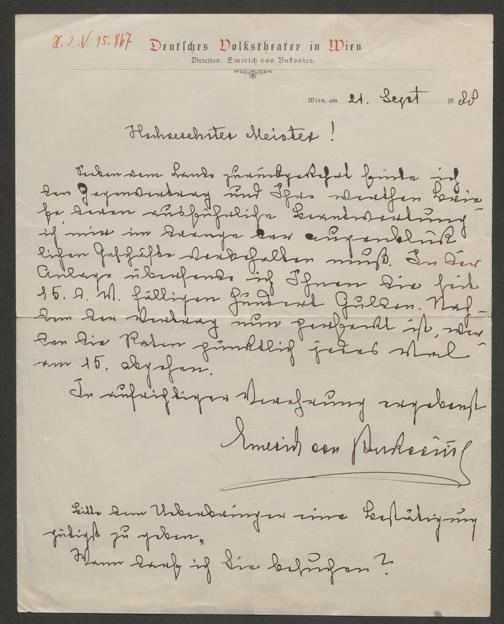 H.I.N. 15.867
Deutsches Volkstheater in Wien
Direction: Emerich von Bukovics.
Wien, am 21. Sept 1888
Hochgeehrter Meister!
Soeben vom Lande zurückgekehrt finde ich
den Gegenvertrag und Ihre werthen Brie-
fe deren ausführliche Beantwortung
ich mir im Drange der augenblick-
lichen Geschäfte vorbehalten muß. In der
Anlage übersende ich Ihnen die seit
15. d. M. fälligen Hundert Gulden. Nach-
dem der Vertrag nun perfect ist, wer-
den die Raten pünktlich jedes Mal
am 15. abgehen.
In aufrichtiger Verehrung ergebenst
Emerich von Bukovics
Bitte dem Ueberbringer eine Bestätigung
gütigst zu geben.
Wann darf ich Sie besuchen?